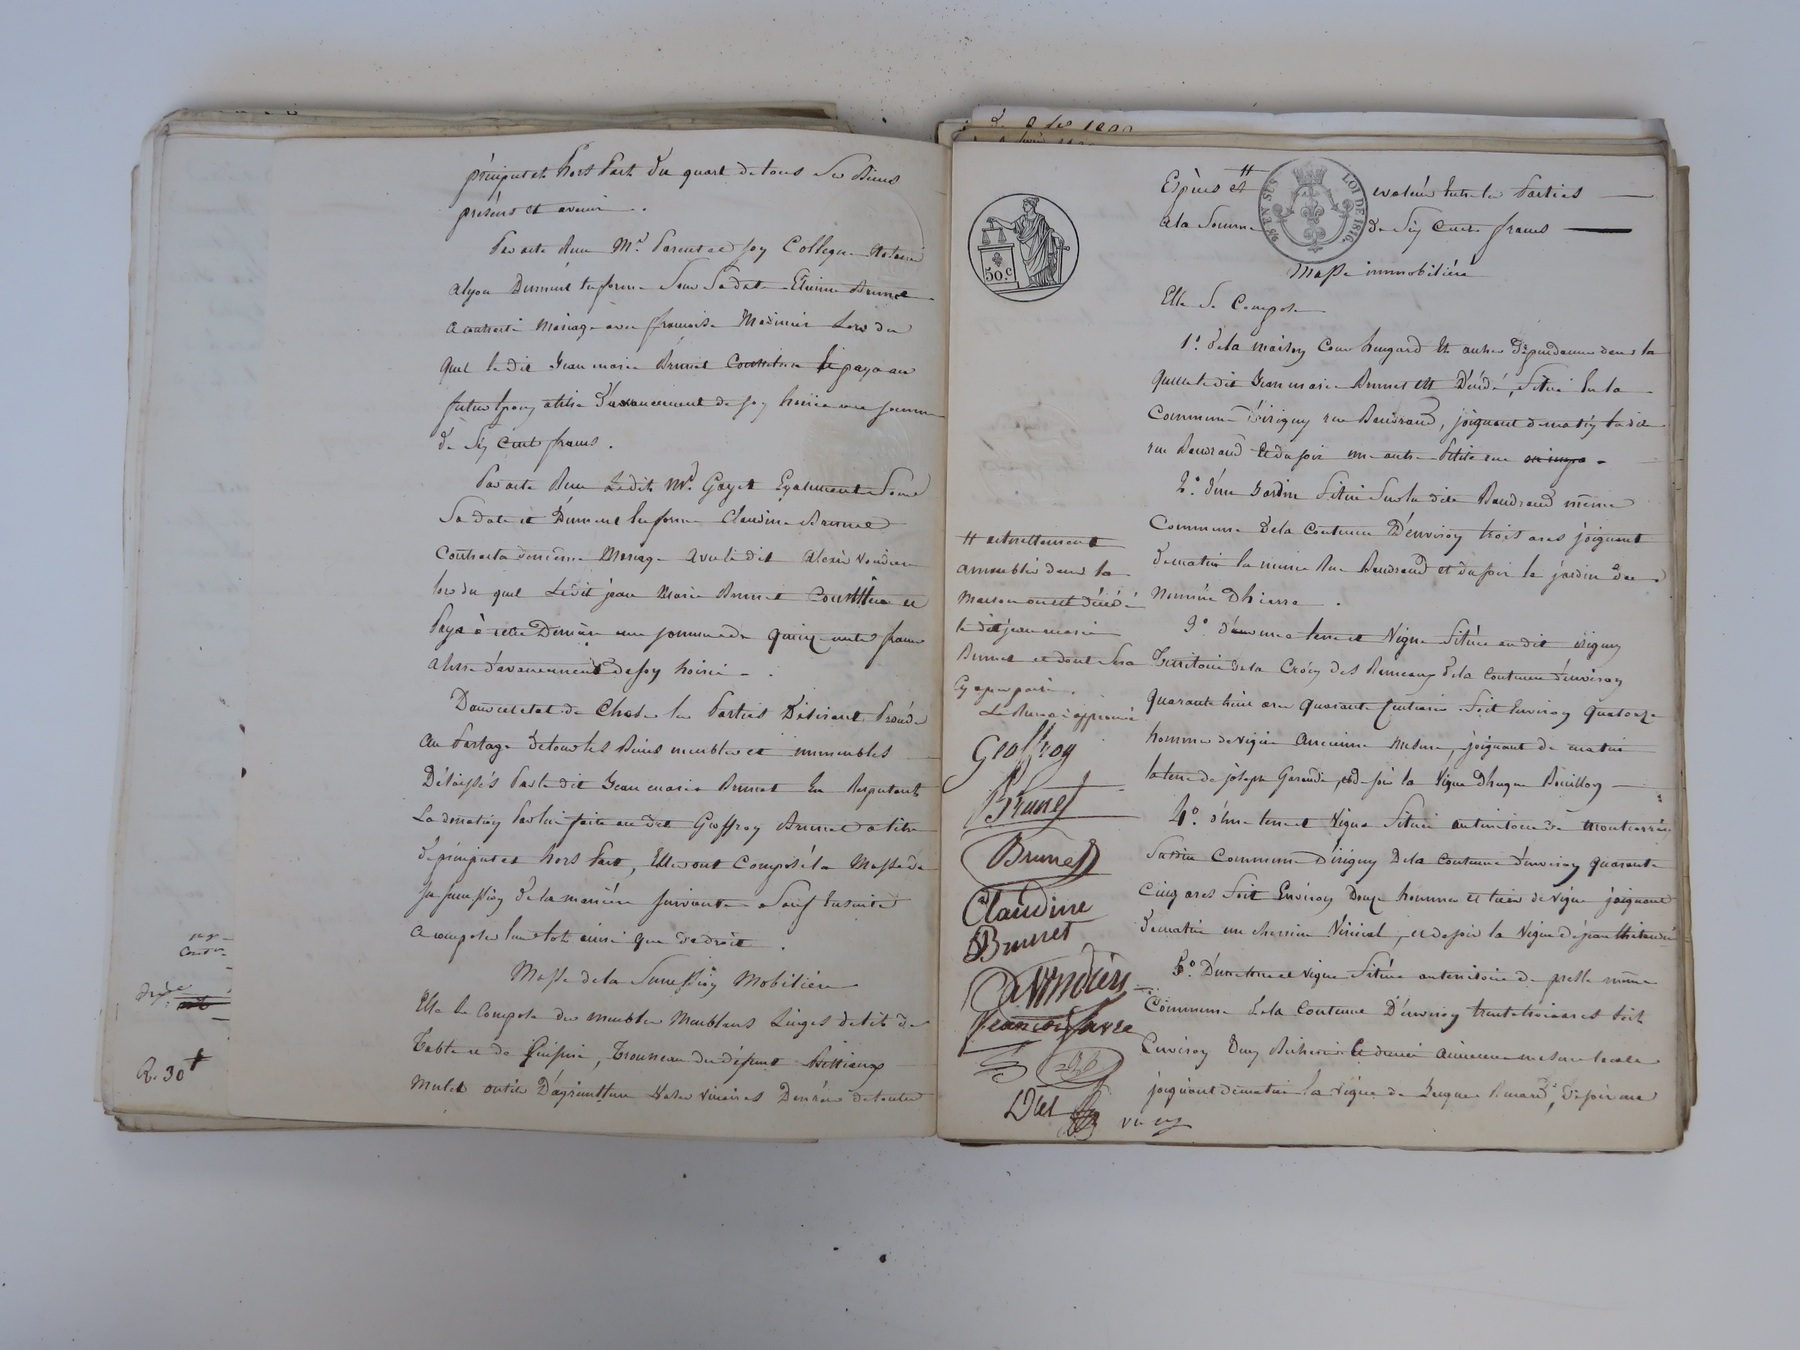 préciput et hors part du quart de tous ses Biens
présens et avenir.
Par acte Reçu Me. Parent et soy Collègue Notaires
a lyon Dument En forme Sous Sa date Etienne Brunet
a contracté Mariage avec françoise Lors du
quel le dit Jean marie Brunet Constitua et paya au
futur Epoux a titre d'avancement de soy hoirie une somme
de Six Cent francs.
Par acte Reçu Ledit Me. Gayet Egalement Sous
Sa date et Dument En forme Claudine Brunet
Contracta Mariage avec le dit Vindier
lors du quel Ledit jean Marie Brunet Constitua et
Paya à cette Dernière une somme de quinze cents francs
a titre d'avancement de soy hoirie.
Dans cet état de Choses les Parties Désirant Procéder
au Partage de tous les Biens meubles et immeubles
Délaissés Par le dit Jean marie Brunet En Respectant
La donation Par lui faite au dit Geoffroy Brunet a titre
de préciput et hors Part, Elles ont Composé la Masse de
sa succession de la manière suivante Sauf Ensuite
a composer leurs lots ainsi que de droit.
Masse de la Succession Mobilière
Elle Se Compose des meubles Meublans Linges de lit de
Table et de Cuisine, Trousseau du défunt Bestiaux
Mulet outils D'agriculture Vases vinaires Denrées de toutes
R. 30
Espèces et évalués Entre les Parties
a la Somme de Six Cents francs
Masse immobilière
Elle Se Compose
1o. de la maison Cour hangard Et autres Dépendances dans la
quelle le dit Jean marie Brunet Est Décédé, Située En la
Commune d'irigny rue Baudrand, joignant de matin la dite
rue Baudrand Et du soir une autre Petite rue
2o. d'un Jardin Situé Sur la dite Baudrand même
Commune de la Contenue D'environ trois ares joignant
de matin la même Rue Baudrand et du soir le jardin du
Nommé Dhierre.
3o. d'une terre et Vigne Située au dit irigny
Territoire de la Croix des Rameaux de la Contenue d'environ
quarante huit ares quarante Centiares Soit Environ quatorze
hommes de vigne ancienne mesure, joignant de matin
la terre de joseph et de soir la Vigne Dhugue Bouillon
4o. d'une terre et Vigne Située au territoire de
Sadite Commune D'irigny De la Contenue d'environ quarante
Cinq ares Soit Environ Douze hommes et tiers de vigne joignant
de matin un chemin Vicinal, et de soir la Vigne de jean
5o. D'une terre et vigne Située au territoire de presle même
Commune de la Contenue D'environ trente trois ares Soit
Environ Deux Bicherées Et demie ancienne mesure locale
joignant de matin la vigne de, de soir une
50.c
98 EN SUS
LOI DE 1816.
H actuellement
ameublés dans la
Maison ou est décédé
le dit jean marie
Brunet et dont Sera
Cy après parlé.
Le Renvoi approuvé
Geoffroy
Brunet
Brunet
Claudine
Brunet
Vindier